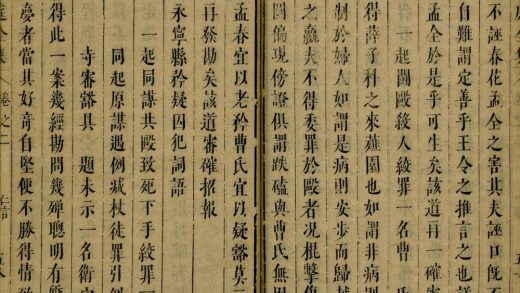 不誣春花孟全之害其夫誣口旣
自難謂定善乎王令之推言之也
孟全於是乎可生矣該道再一確
一起鬭毆殺人絞罪一名曹
得薛子科之來羅園也如謂非病則
制於婦人如謂是病則安步而歸
之羸夫不得委罪於毆者况棍擊傷
圖傷現傍證俱謂跌磕與曹氏無
孟春宜以老矜曹氏宜以疑豁莫
再發勘矣該道審確招報
永寧縣矜疑囚犯詞語
一起同謀共毆致死下手絞罪
同起原謀遇例減杖徒罪引
寺審豁具 題未示一名衛
得此一案幾經勘問幾殫聰明有
慶者當其好奇自堅便不勝得情
全集 卷之二